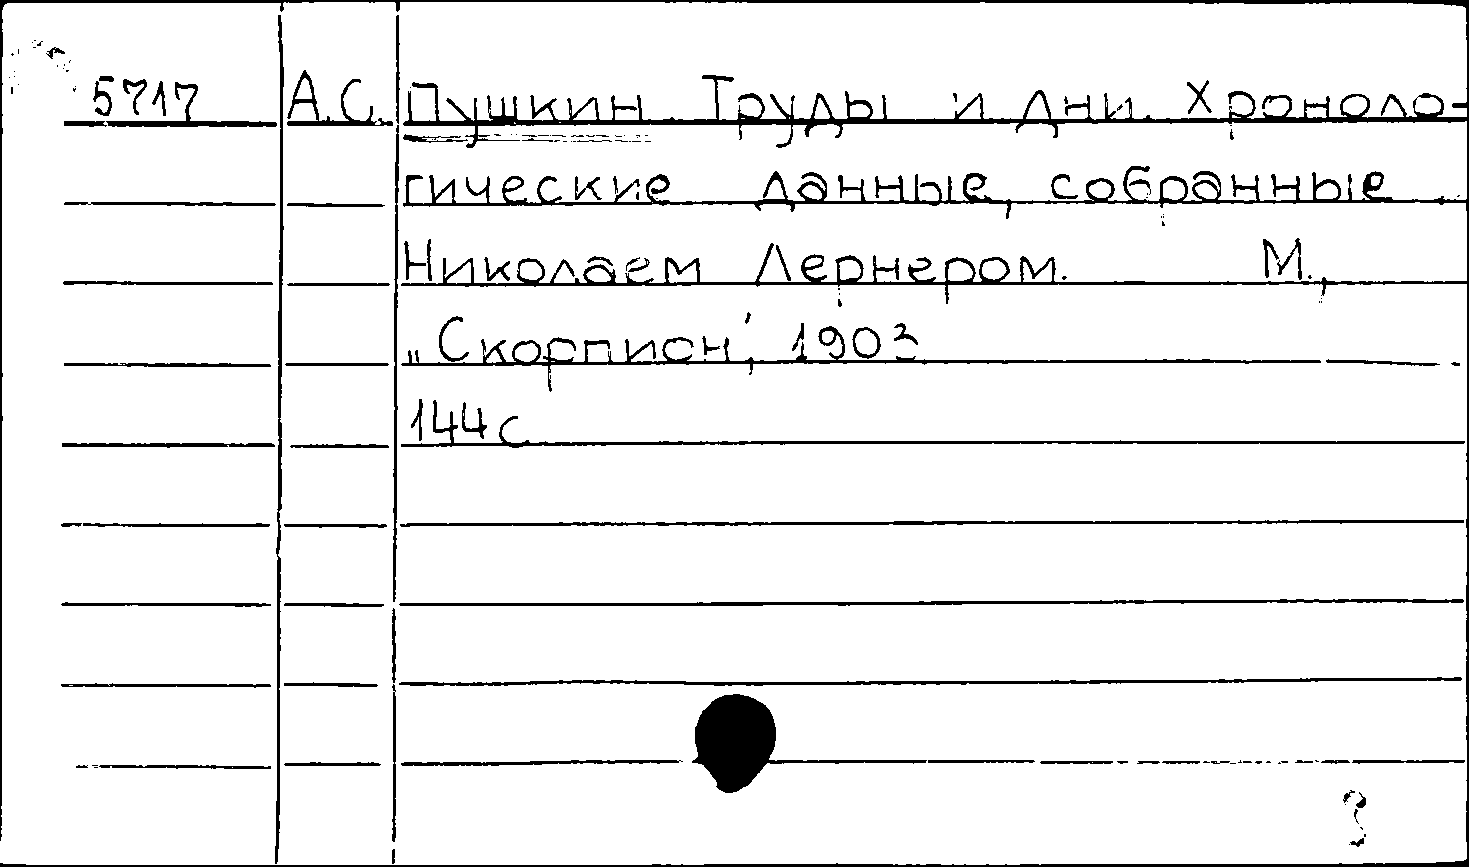 5717 А.С. Пушкин. Труды и дни. Хроноло-
гические данные, собранные
Николаем Лернером. М.,
„Скорпион", 1903
144 с